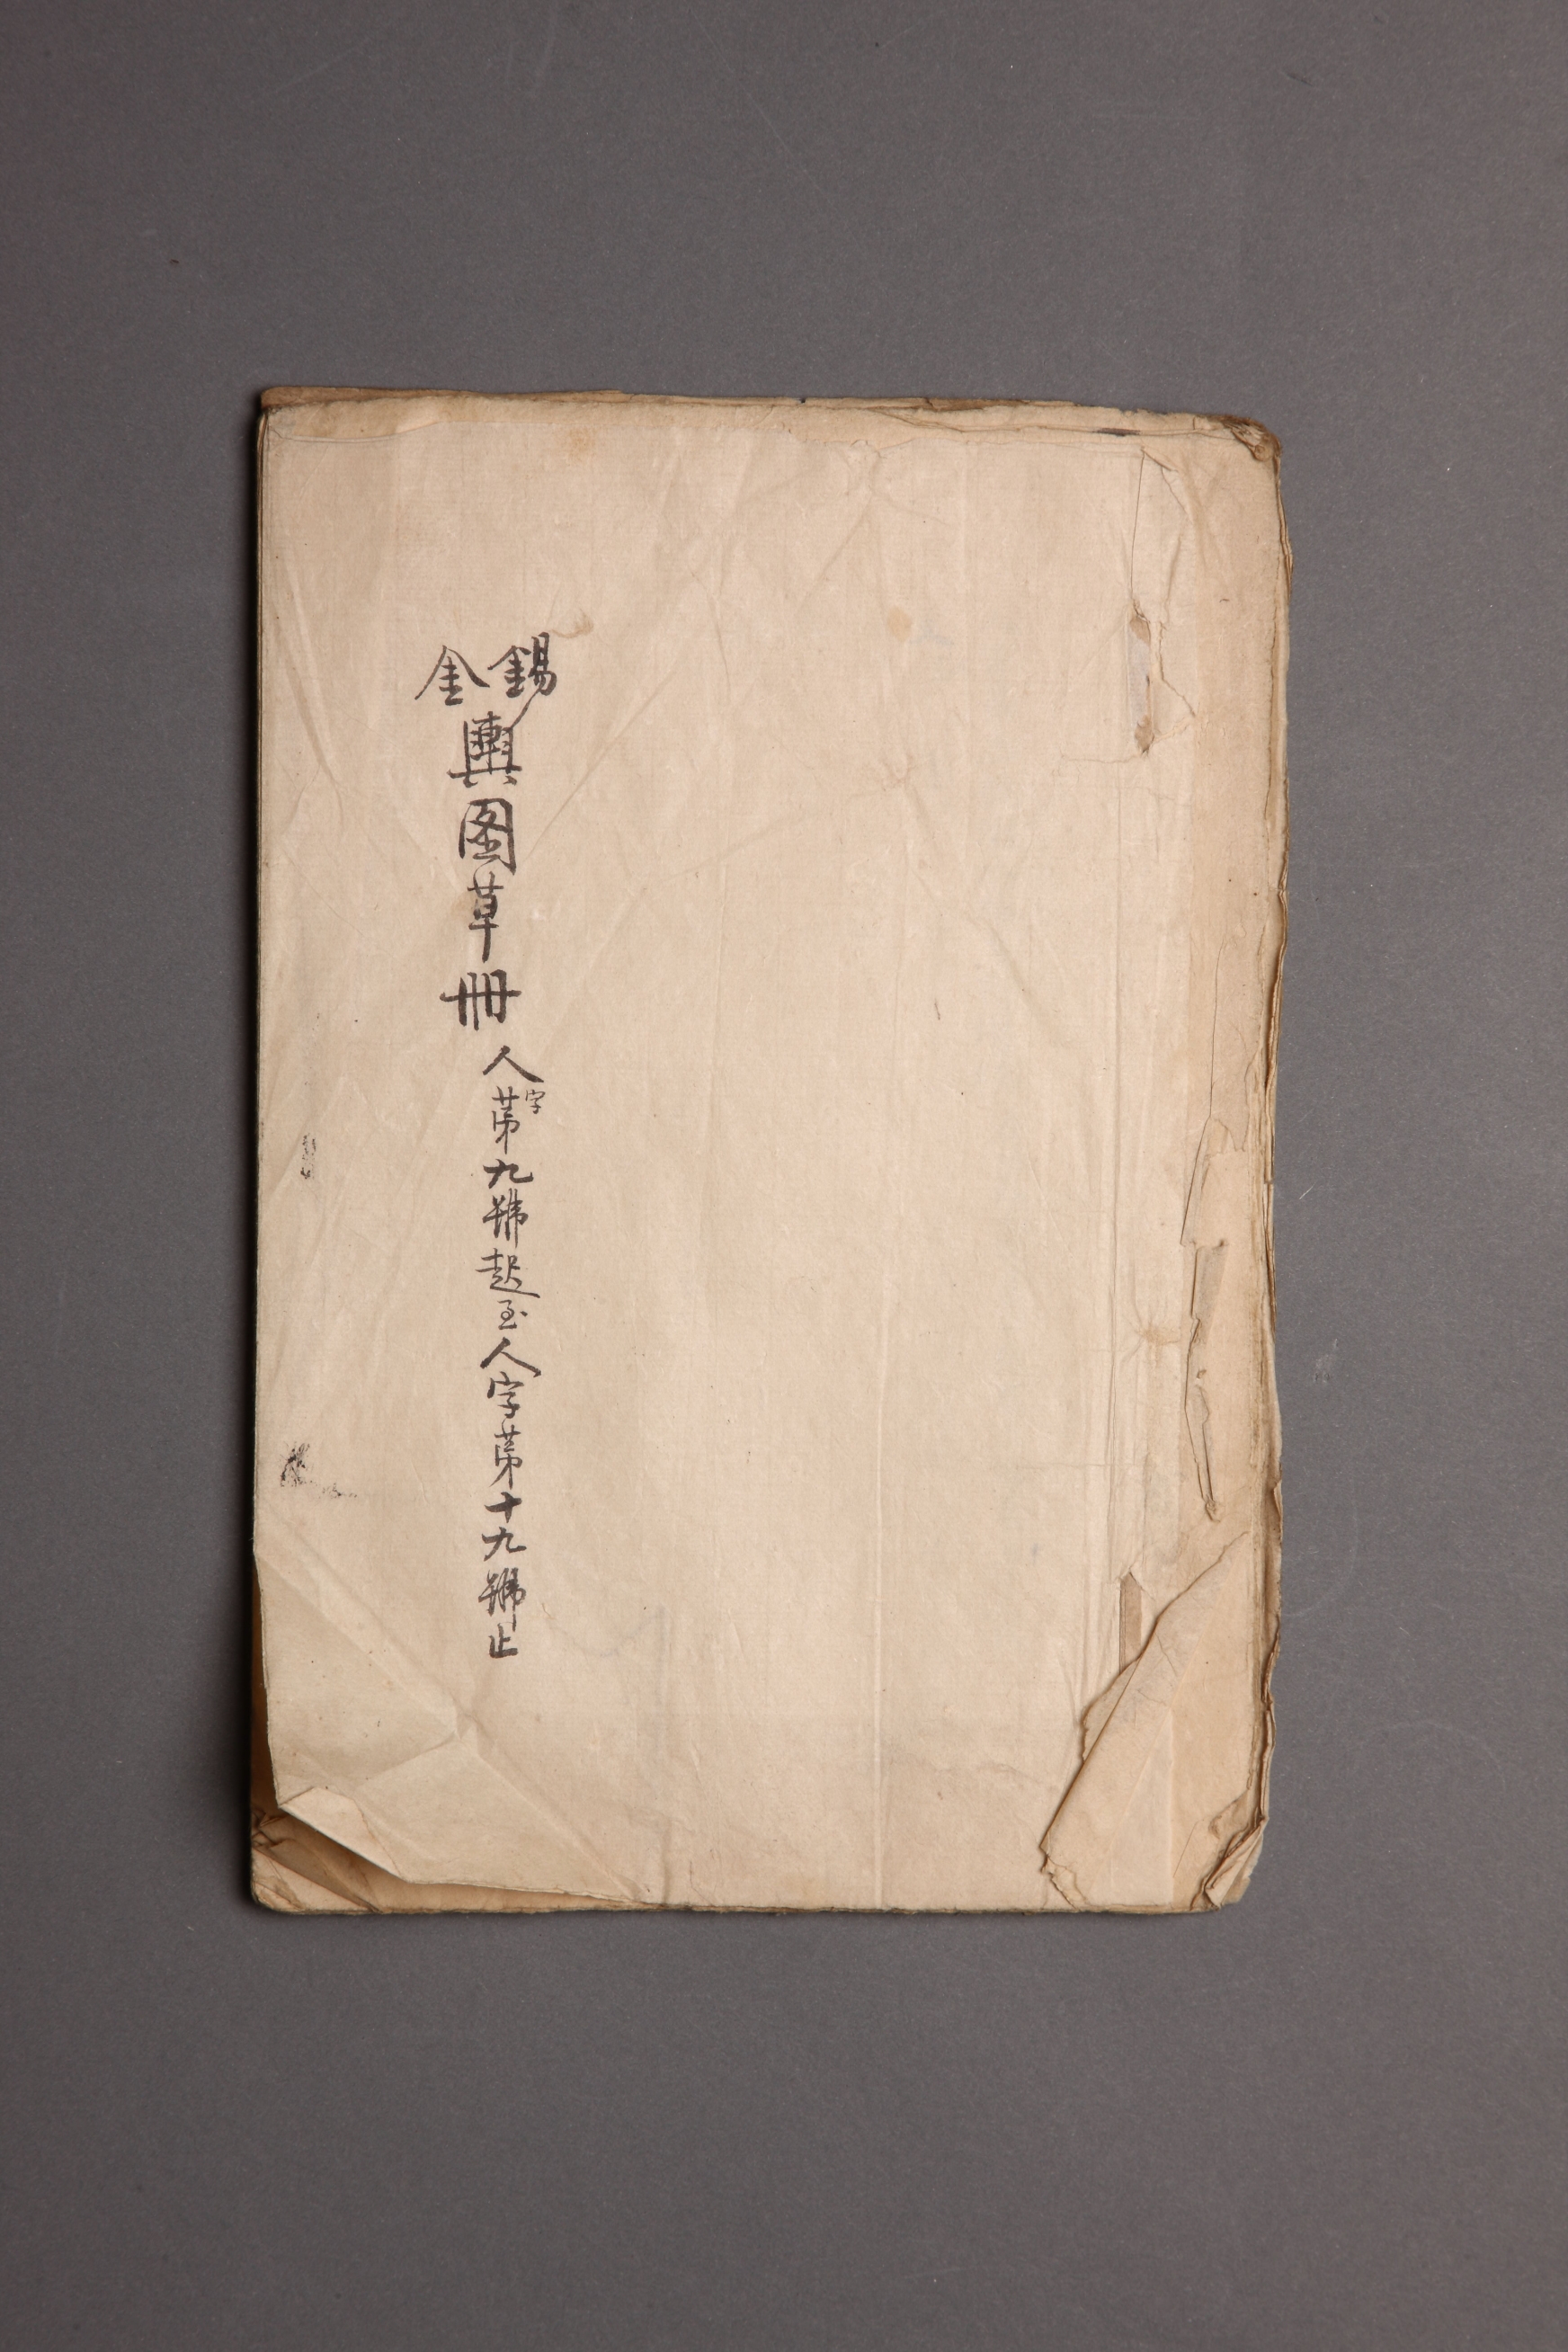 錫金輿图草冊
人字第九號起至人字第十九號止